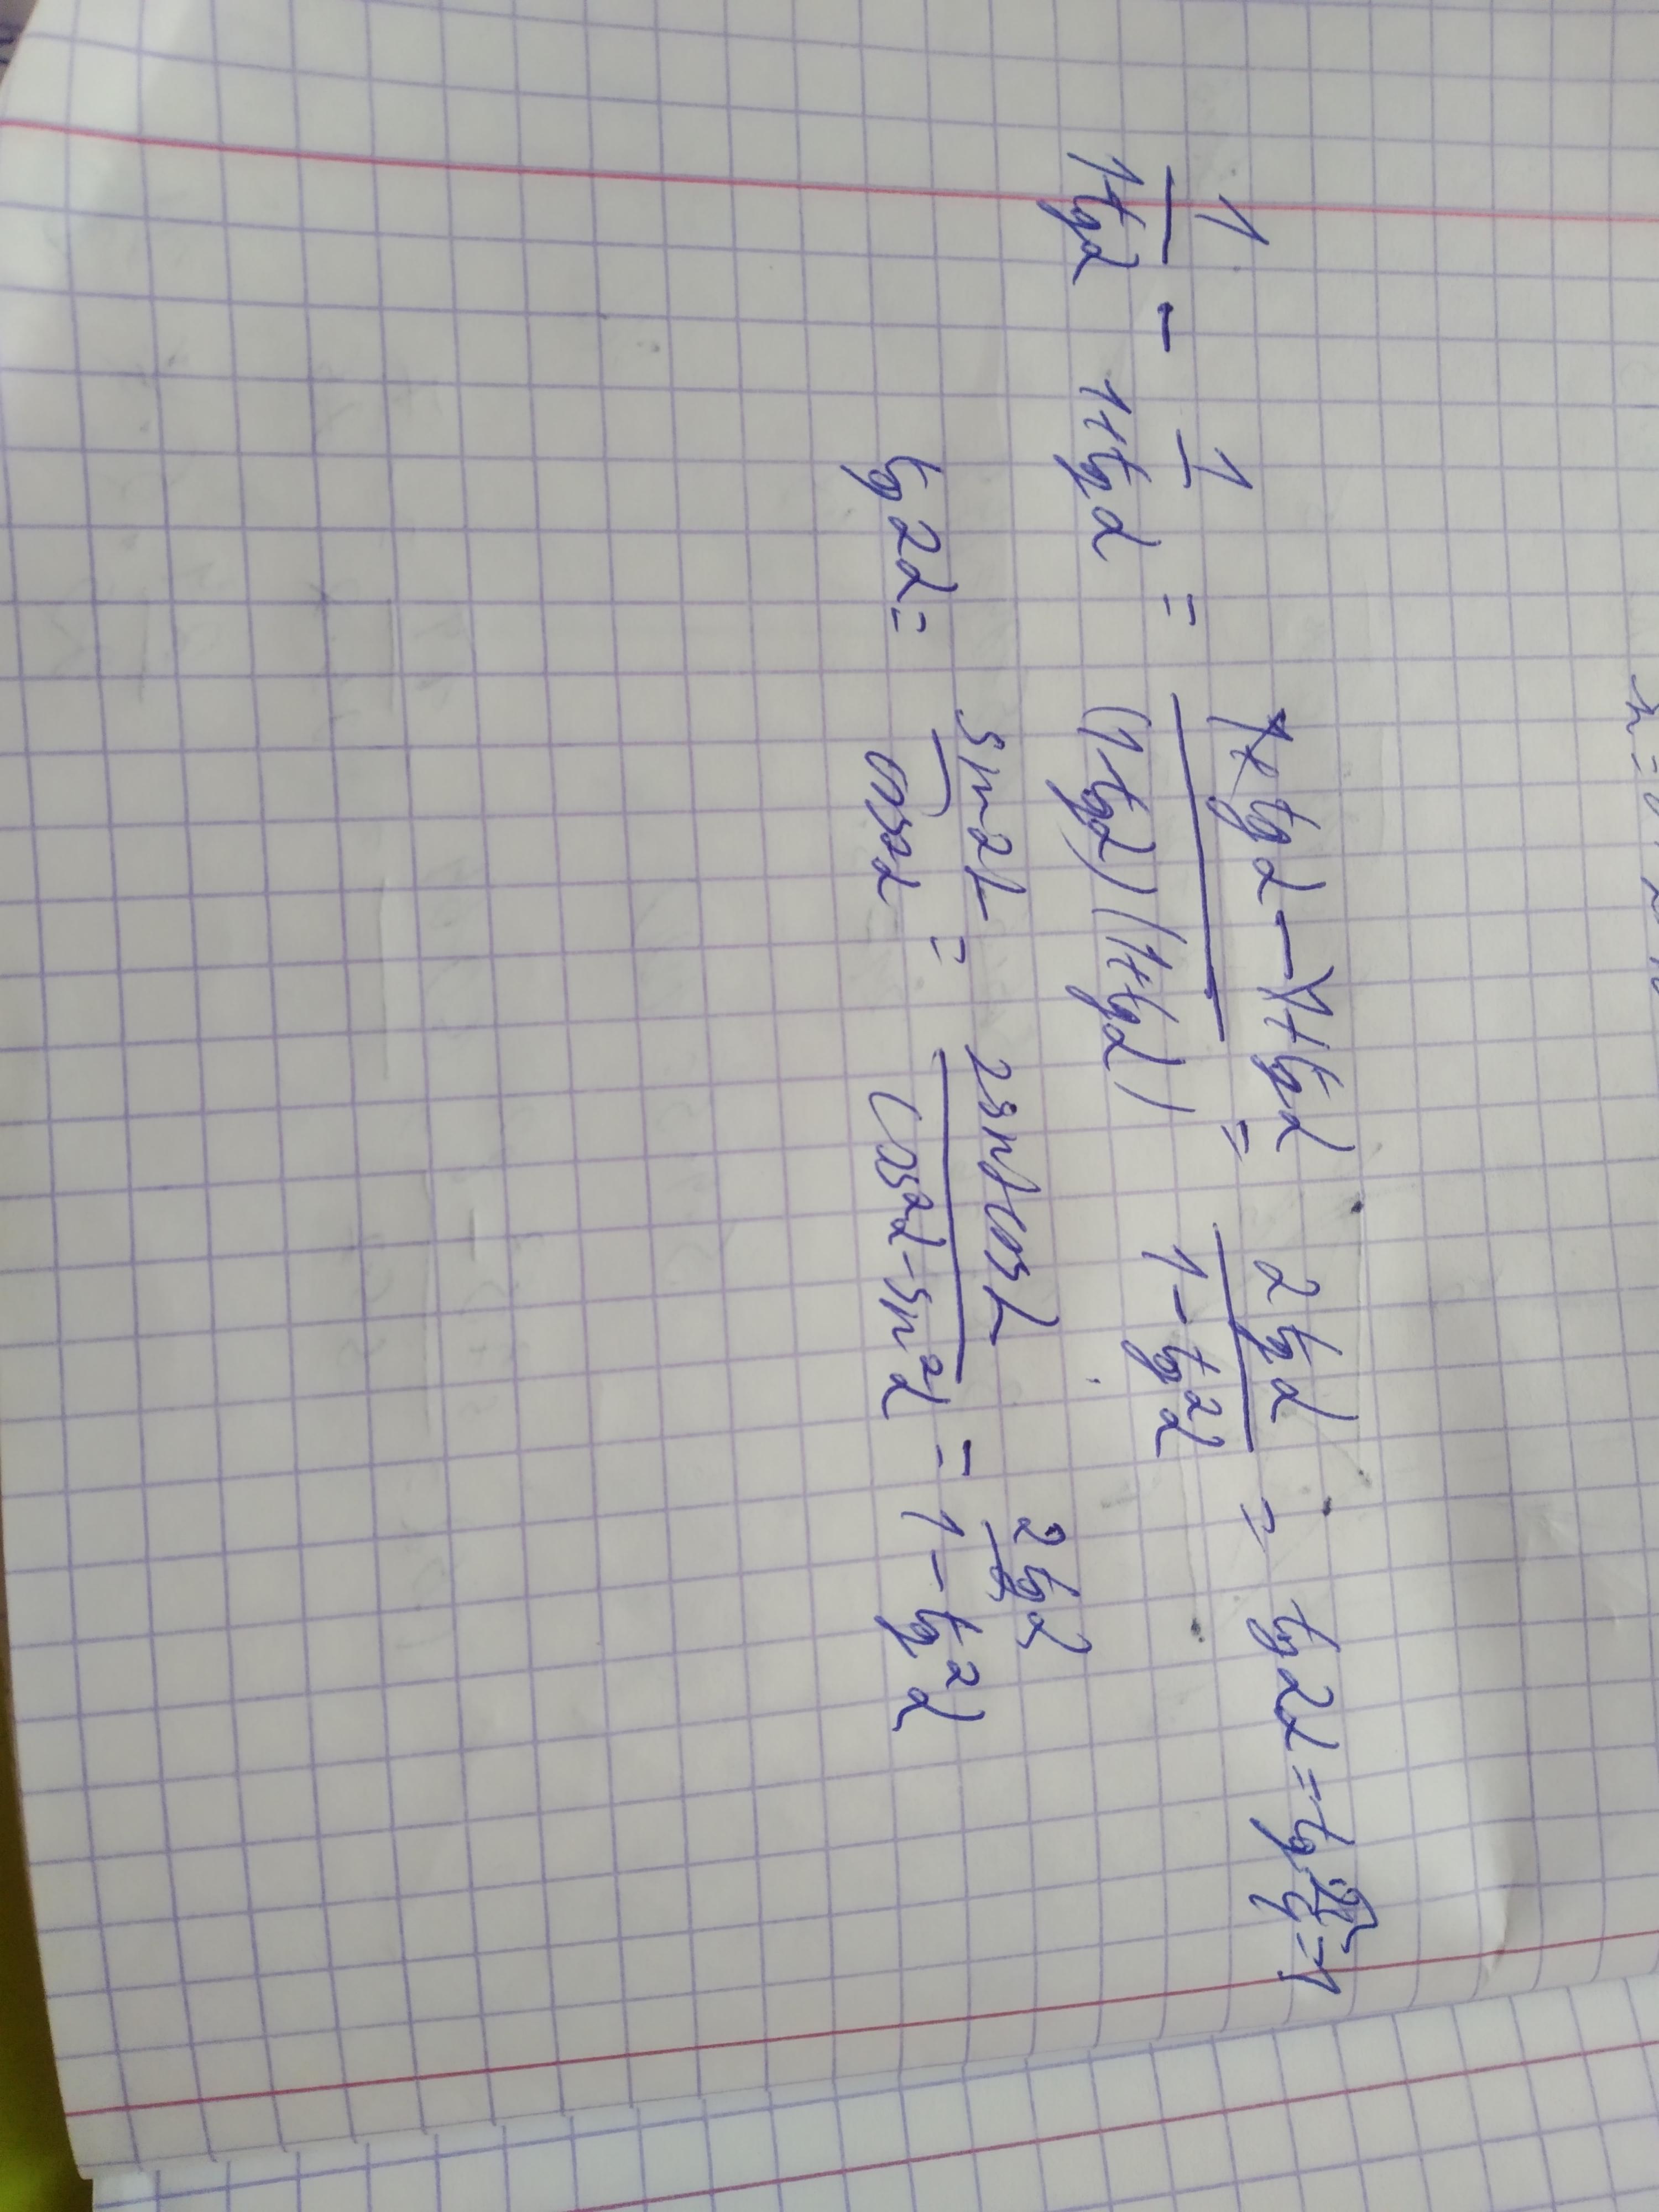 1/(1-tgα) - 1/(1+tgα) = (1+tgα-1+tgα)/((1-tgα)(1+tgα)) = 2tgα/(1-tg²α) = tg2α = tg π/4 = 1
tg2α = sin2α/cos2α = 2sinαcosα/(cos²α-sin²α) = 2tgα/(1-tg²α)